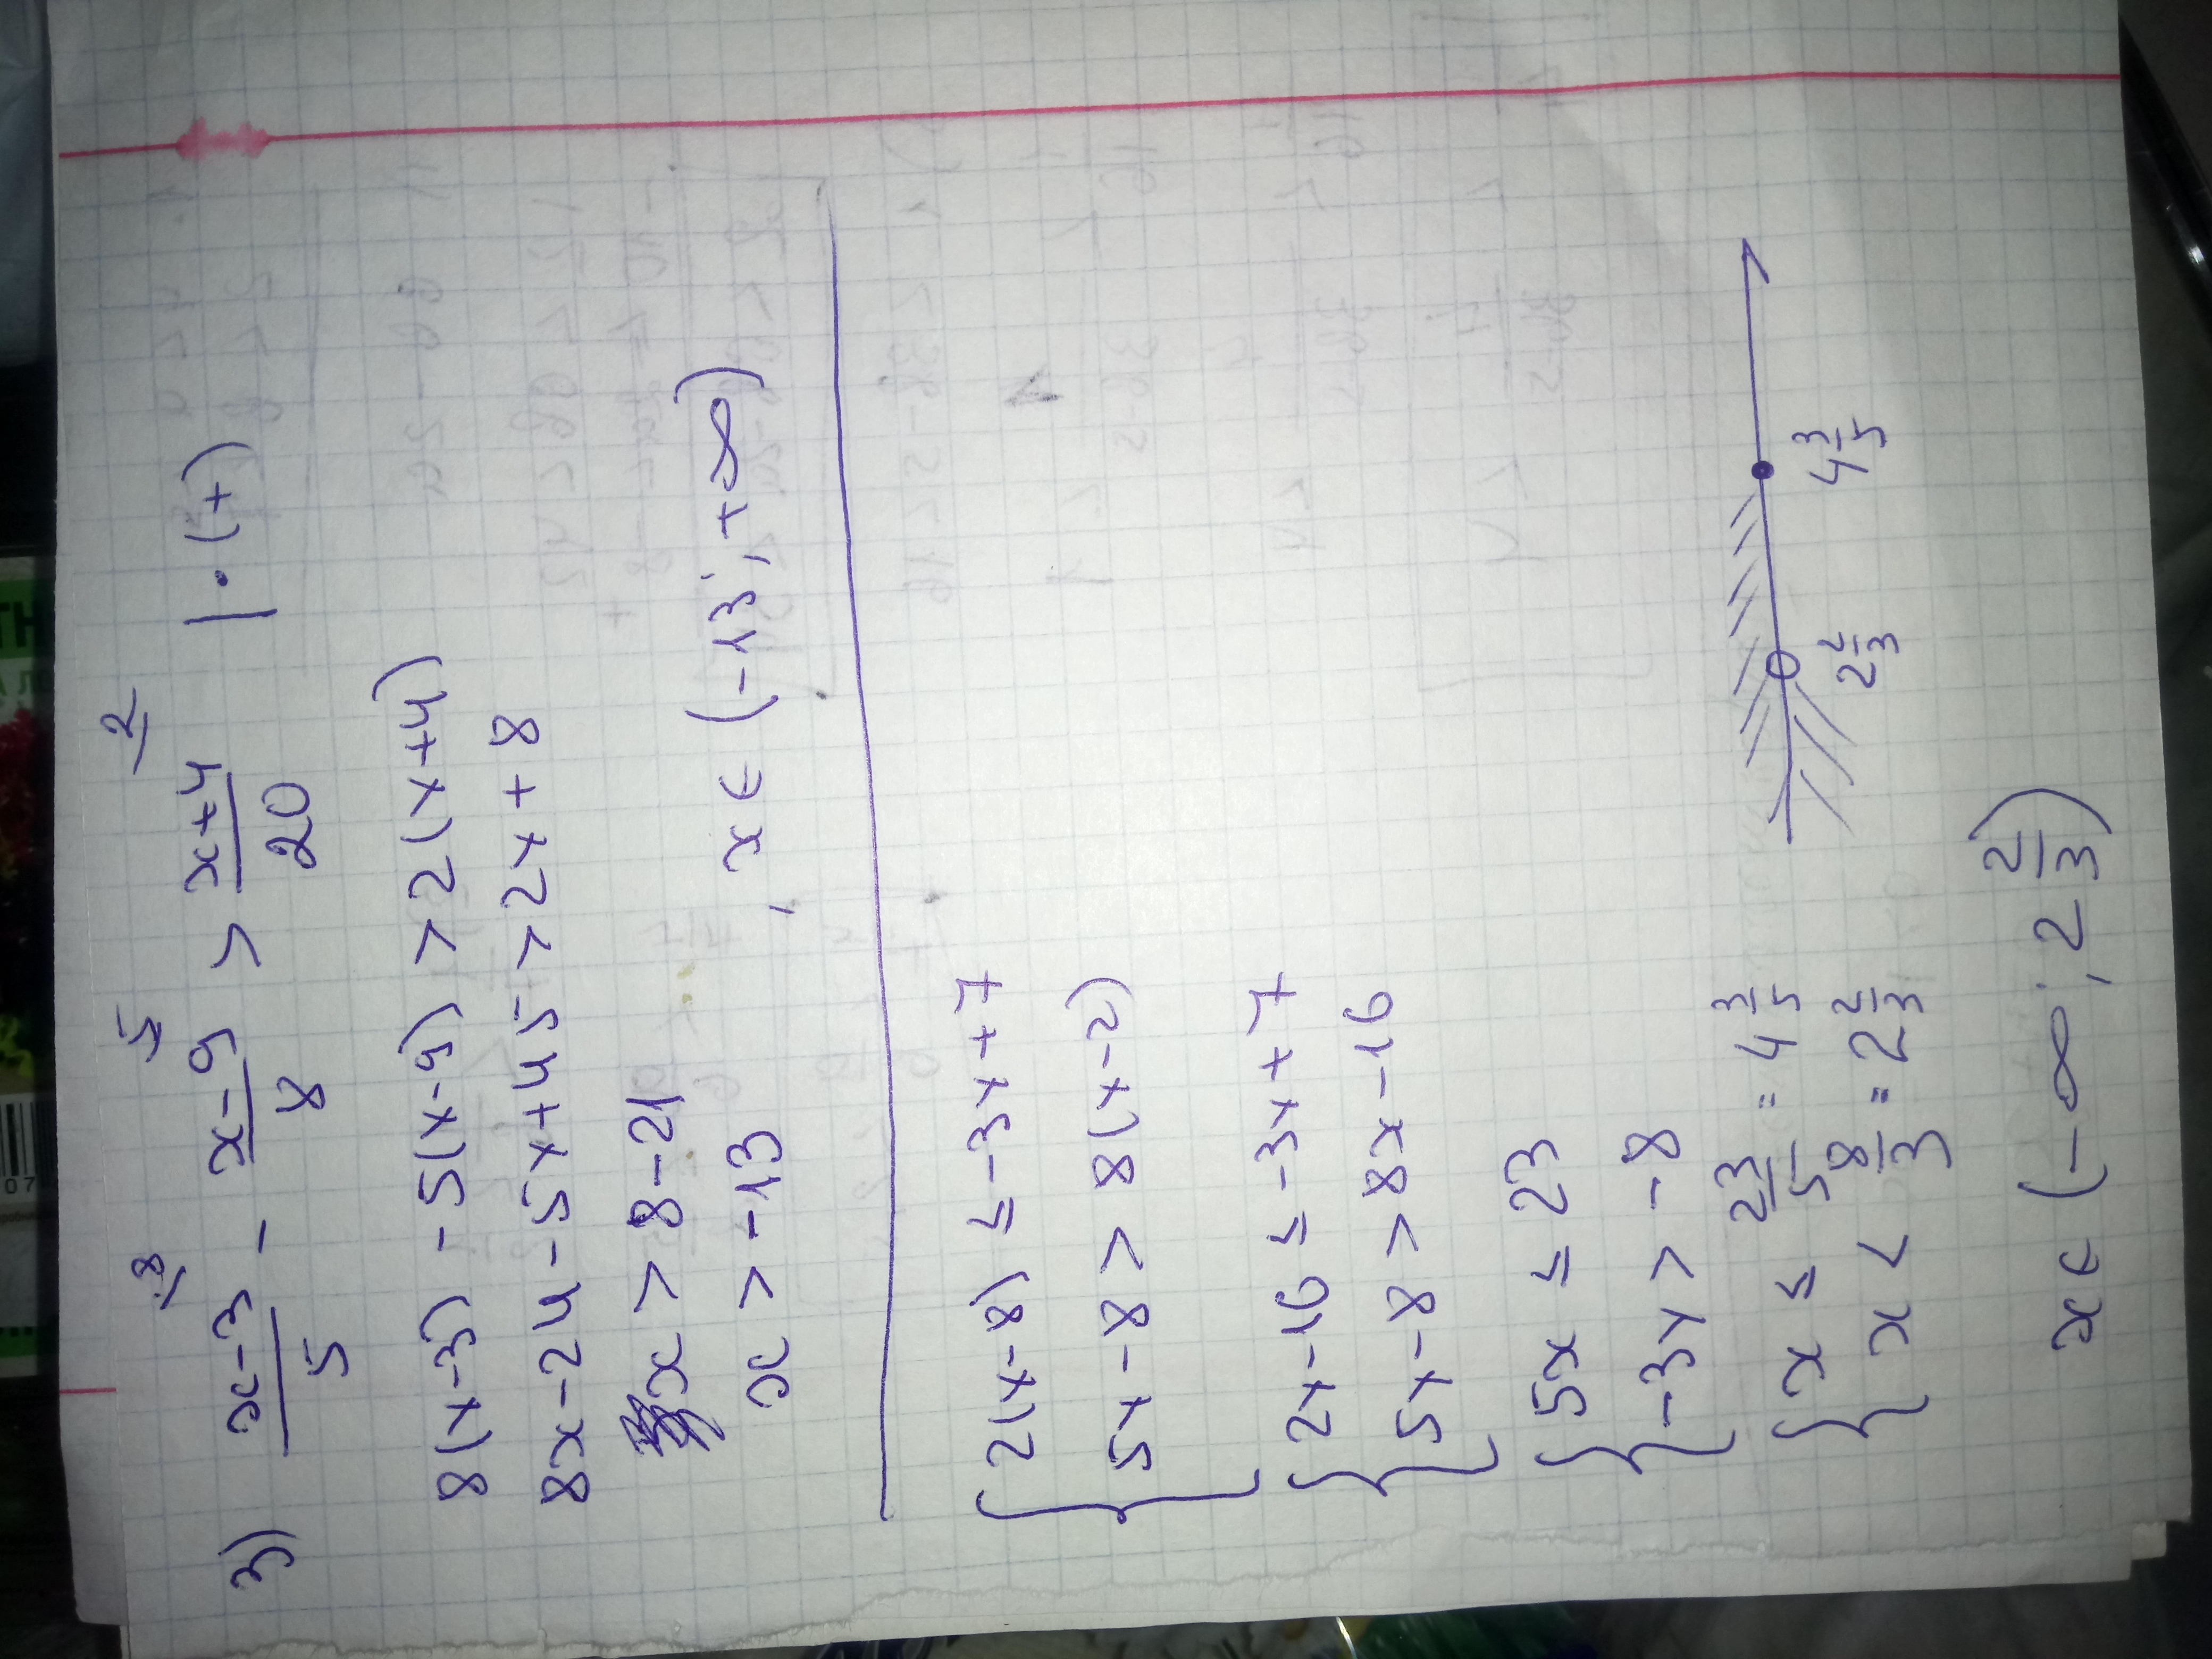 3) x-3/5 - x-9/8 > x+4/20 | · (+)
8 5 2
8(x-3) - 5(x-9) > 2(x+4)
8x-24-5x+45 > 2x+8
x > 8-21
x > -13, x ∈ (-13; +∞)
{ 2(x-8) ≤ -3x+7
5x-8 > 8(x-2)
{ 2x-16 ≤ -3x+7
5x-8 > 8x-16
{ 5x ≤ 23
-3x > -8
{ x ≤ 23/5 = 4 3/5
x < 8/3 = 2 2/3
2 2/3 4 3/5
x ∈ (-∞; 2 2/3)